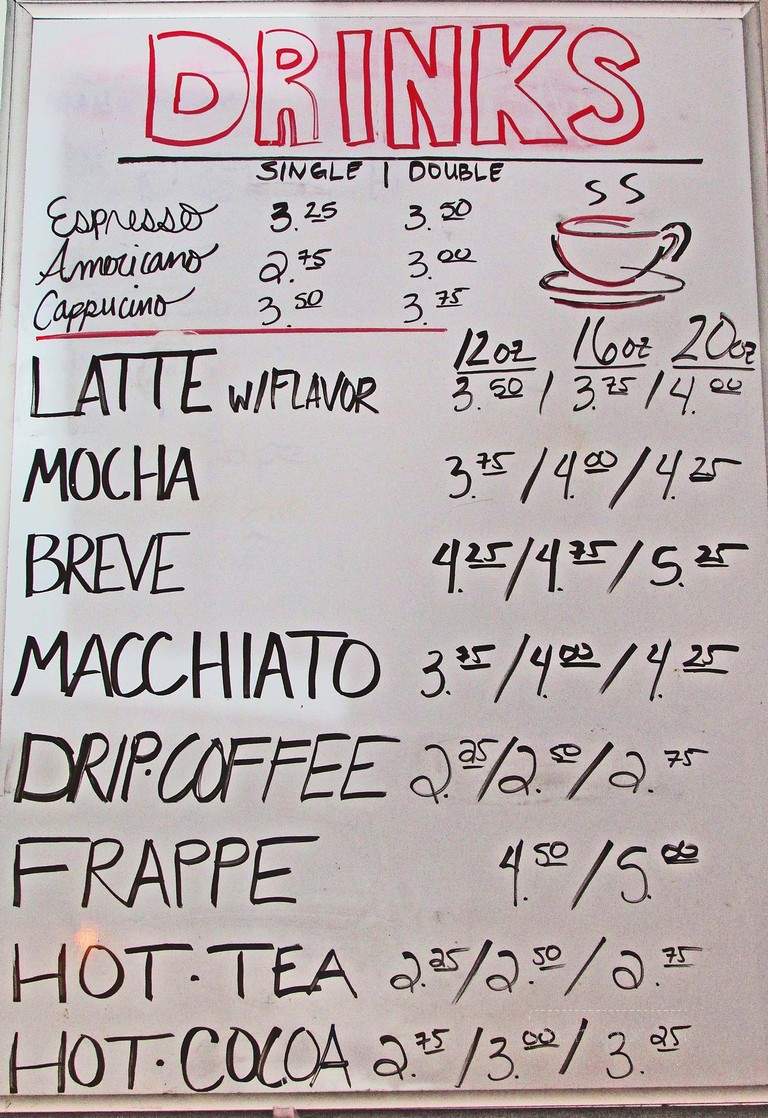 DRINKS
SINGLE | DOUBLE
Espresso 3.25 3.50
Americano 2.75 3.00
Cappucino 3.50 3.75
12oz 16oz 20oz
LATTE W/FLAVOR 3.50 / 3.75 / 4.00
MOCHA 3.75 / 4.00 / 4.25
BREVE 4.25 / 4.75 / 5.25
MACCHIATO 3.75 / 4.00 / 4.25
DRIP·COFFEE 2.25 / 2.50 / 2.75
FRAPPE 4.50 / 5.00
HOT·TEA 2.25 / 2.50 / 2.75
HOT·COCOA 2.75 / 3.00 / 3.25